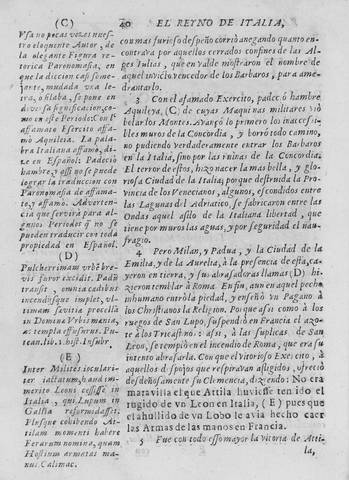 (C) 40 EL REYNO DE ITALIA,
Vsa no pocas vozes nues-
tro eloquente Autor, de
la elegante Figura re-
torica Paronomasia, en
que la diccion casi seme-
jante, mudada vna le-
tra, ò silaba, se pone en
diversa significacion; co-
mo en este Periodo: Con el
affamato Esercito affa-
mò Aquileia. La pala-
bra Italiana affamò, di-
ze en Español: Padeciò
hambre, y assi no se puede
lograr la traduccion con
Paronomasia de affama-
to, y affamò. Adverten-
cia que servirà para al-
gunos Periodos q̃ no se
pueden traducir con toda
propiedad en Español.
(D)
Pulcherrimam vrbẽ bre-
vis furor excidit. Padũ
transsit, omnia cædibus
incendijsque implet, vl-
timam sævitia procella
in Domina Vrbis mania,
ac templa effusurus. Pu-
tean. lib. 1. hist. Insubr.
(E)
Inter Milites ioculari-
ter iactatum, haud im-
merito Leoni cessisse in
Italia, qui Lupum in
Gallia reformidasset:
Plusque cohibendo At-
tilam momenti habere
Ferarum nomina, quam
Hostium armatas ma-
nus. Calimac.
con mas furioso despeño corriò anegando quanto en-
contrava por aquellos cerrados confines de las Al-
pes Iulias, que en valde mostraron el nombre de
aquel invicto vencedor de los Barbaros, para ame-
drantarlo.
3 Con el afamado Exercito, padeciò hambre
Aquileya, (C) de cuyas Maquinas militares viò
belar los Montes. Avançò lo primero los inaccessi-
bles muros de la Concordia, y borrò todo camino,
no pudiendo verdaderamente entrar los Barbaros
en la Italia, sino por las ruinas de la Concordia.
El terror de estos, hizo nacer la mas bella, y glo-
riosa Ciudad de la Italia; porque destruida la Pro-
vincia de los Venecianos, algunos, escondidos entre
las Lagunas del Adriatico, se fabricaron entre las
Ondas aquel asilo de la Italiana libertad, que
tiene por muros las aguas, y por seguridad el nau-
fragio.
4 Pero Milan, y Padua, y la Ciudad de la
Emilia, y de la Aurelia, à la presencia de esta, ca-
yeron en tierra, y sus abrasadoras llamas (D) hi-
zieron temblar à Roma. En fin, aun en aquel pecho
inhumano entrò la piedad, y enseñò vn Pagano à
los Christianos la Religion. Porque assi como à los
ruegos de San Lupo, suspendiò en Francia el azo-
te à los Tricasinos: assi, à las suplicas de San
Leon, so templò en el incendio de Roma, que era su
intento abrasarla. Con que el vitorioso Exercito, à
aquellos despojos que respiravan afligidos, ofreciò
desdeñosamente su Clemencia, diziendo: No era
maravilla el que Attila huviesse tenido el
rugido de vn Leon en Italia, (E) pues que
el ahullido de vn Lobo le avia hecho caer
las Armas de las manos en Francia.
5 Fue con todo esso mayor la vitoria de Atti-
la,